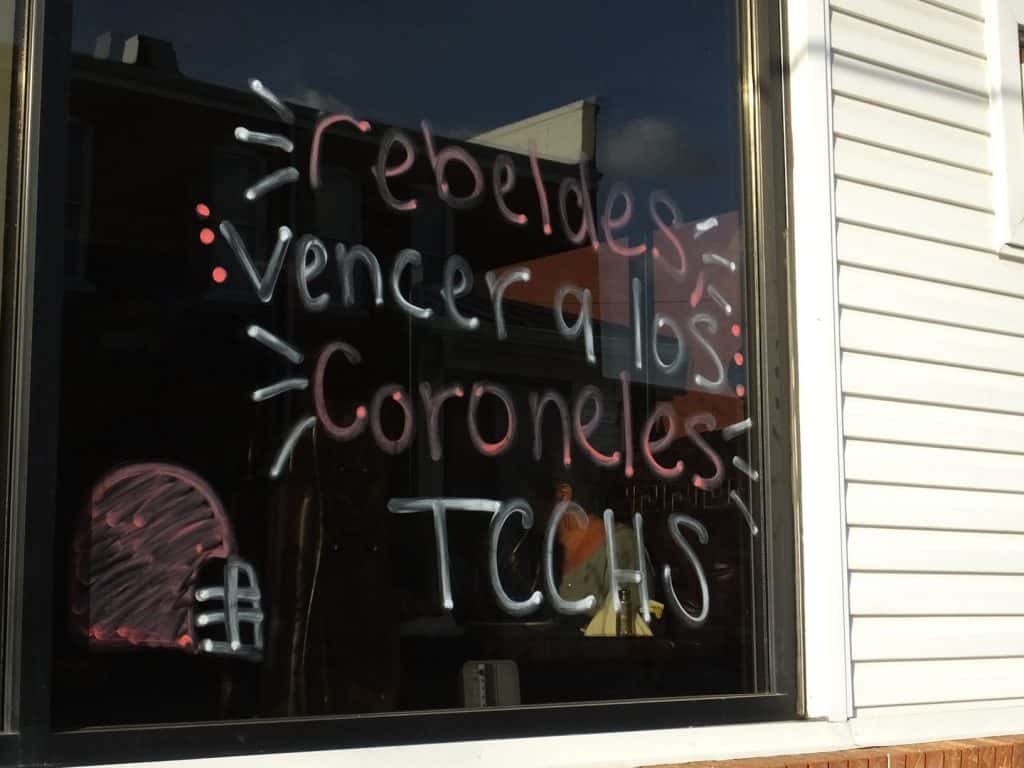 rebeldes
vencer a los
Coroneles
TCCHS